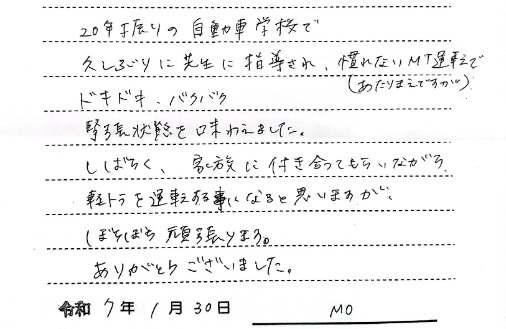 20年振りの自動車学校で
久しぶりに先生に指導され、慣れないMT運転で
(あたりまえですが)
ドキドキ、バクバク
緊張状態を味わえました。
しばらく、家族に付き合ってもらいながら
軽トラを運転する事になると思いますが、
ぼちぼち頑張ります。
ありがとうございました。
令和 7年 1月 30日 MO